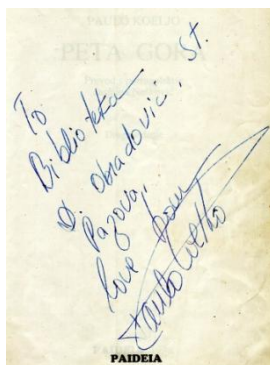 PAULO KOELJO
PETA GORA
To
Biblioteka
D. Obradovic, St.
Pazova,
love from
Paulo Coelho
PAIDEIA